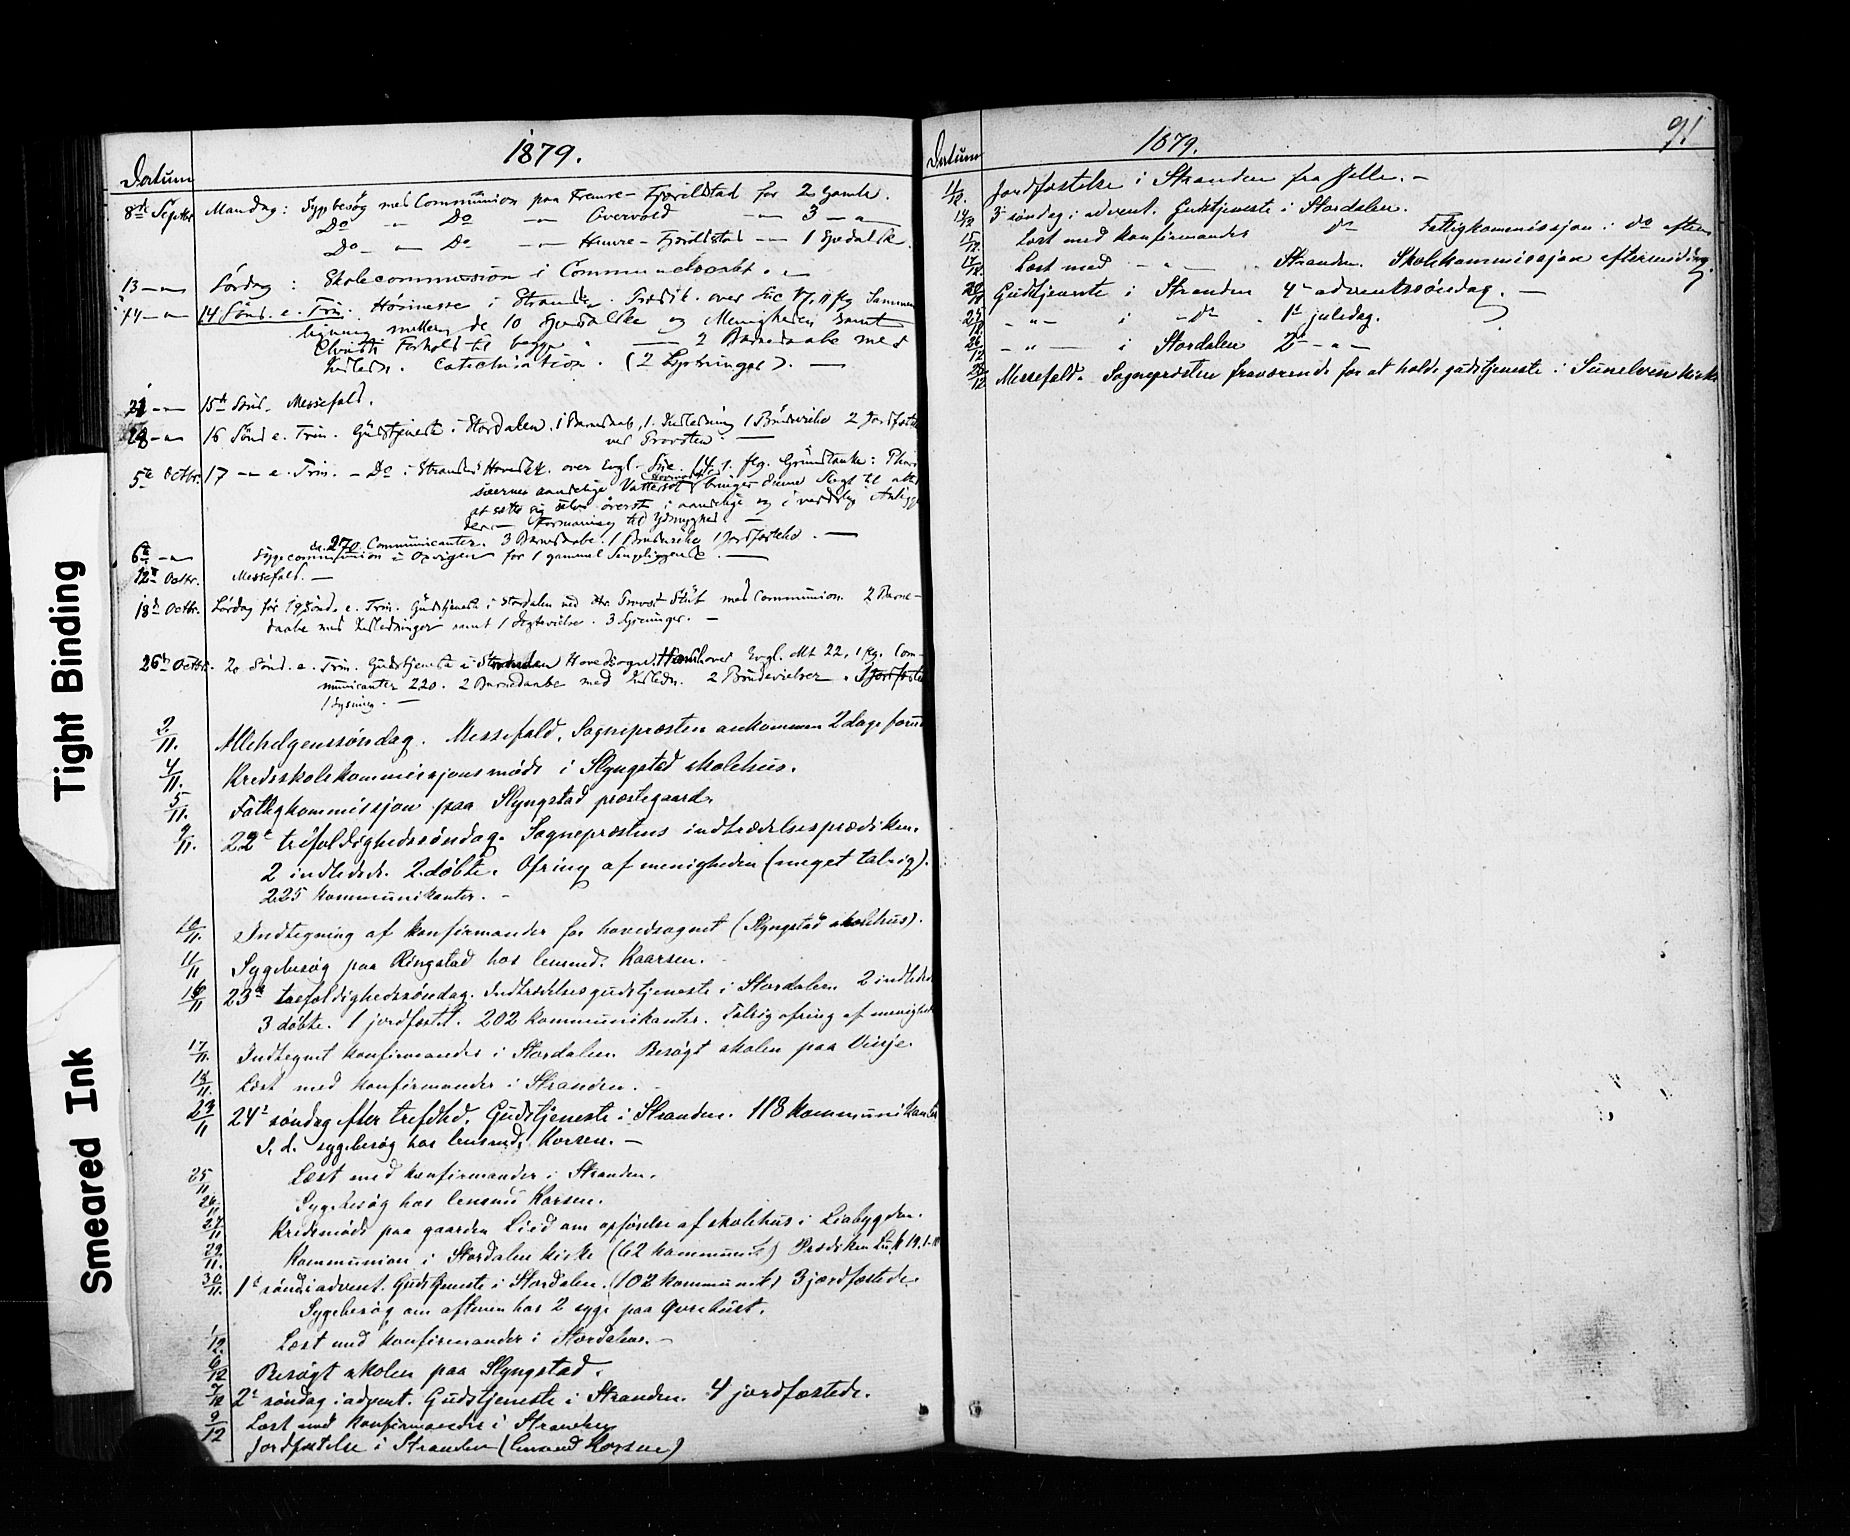 1879.
Datum
8de Septbr. Mandag: Sygebesøg med Communion paa Fremre-Fjørdstad for 2 gamle.
Do - Do - Overvold - 3 -
Do - Do - Hemre-Fjørdstad - 1 Spedalsk.
13 - Lørdag: Skolecommission i Communelocalet. -
14 - 14 Sønd. e. Trin. Høimesse i Stranden. Prædik. over Luc 17, 11 flg Sammen
ligning mellem de 10 Spedalske og Menigheden samt
Christi Forhold til begge - 2 Barnedaabe med
Indledn. Catechisation. (2 Lysninger). -
21 - 15de Sønd. Messefald.
28 - 16 Sønd e. Trin. Gudstjeneste i Stordalen. 1 Barnedaab, 1 Indledning 1 Brudevielse 2 Jordfæstels
ved Provsten. -
5te Octbr. 17 - e. Trin. - Do i Strandens Hovedk. over Evgl. Luc. 14, 1 flg. Grundtanke: Phari
sæernes aandelige Vattersot bringer denne Slegt til altid
at sætte sig selv øverst i aandelige og i verdslige Anligg
der. - Formaning til Ydmyghed. -
ca. 270 Communicanter. 3 Barnedaabe. 1 Brudevielse 1 Jordfæstelse. -
6te - Sygecommunion i Opvigen for 1 gammel Sengeliggende. -
12te Octbr. Messefald. -
18de Octbr. Lørdag før 19 Sønd. e. Trin. Gudstjeneste i Stordalen ved Hr. Provst med Communion 2 Barne-
daabe med Indledninger samt 1 Ægtevielse. 3 Lysninger. -
26de Octbr. 20 Sønd. e. Trin. Gudstjeneste i Stranden Hovedsogn. over Evgl. Mt 22, 1 flg. Com-
municanter 220. 2 Barnedaabe med Indledn. 2 Brudevielser.
1 Lysning. -
2/11. Allehelgenssøndag. Messefald. Sognepræsten ankommen 2 dage forud
4/11. Kredsskolekommissjonsmøde i Slyngstad skolehus.
5/11. Fattigkommissjon paa Slyngstad præstegaard.
9/11. 22de trefoldighedssøndag. Sognepræstens indtrædelsesprædiken.
2 indledede. 2 døbte. Ofring af menigheden (meget talrig).
225 kommunikanter. -
10/11. Indtegning af konfirmander for hovedsognet (Slyngstad skolehus).
11/11 Sygebesøg paa Ringstad hos lensmd. Kaarsen.
16/11 23de trefoldighedssøndag. Indtrædelsesgudstjeneste i Stordalen 2 indledede
3 døbte. 1 jordfæstet. 202 kommunikanter. Talrig ofring af menighed
17/11. Indtegnet konfirmander i Stordalen. Besøgt skolen paa Vinje.
18/11. Læst med konfirmander i Stranden. -
23/11 24de søndag efter trefdhd. Gudstjeneste i Stranden. 118 kommunikanter
S. d. sygebesøg hos lensmd. Korsen. -
25/11 Læst med konfirmander i Stranden.
26/11 Sygebesøg hos lensmd Korsen.
27/11 Kredsmøde paa gaarden Lied om opførelse af skolehus i Liabygden.
29/11. Kommunion i Stordalens kirke (62 kommunik) Prædiken Luk 19, 1-10
30/11. 1ste sønd i advent. Gudstjeneste i Stordalen. (102 kommunik) 3 jordfæstede.
Sygebesøg om aftenen hos 2 syge paa
1/12. Læst med konfirmander i Stordalen. -
6/12 Besøgt skolen paa Slyngstad.
7/12 2de søndag i advent. Gudstjeneste i Stranden. 4 jordfæstede.
9/12 Læst med konfirmander i Stranden
Jordfæstelse i Stranden (lensmd Korsen)
1879. 91
Datum
11/12. Jordfæstelse i Stranden fra Jelle. -
14/12 3de søndag i advent. Gudstjeneste i Stordalen.
15/12. Læst med konfirmander do Fattigkommissjon i do aften
17/12. Læst med - " - Stranden. Skolekommissjon eftermiddag.
Gudstjeneste i Stranden 4de adventssøndag. -
25/12. - " - i do 1ste juledag.
26/12 - " - i Stordalen 2de - " -
28/12 Messefald. Sognepræsten fraværende for at holde gudstjeneste i Sunelven kirke
Tight Binding
Smeared Ink